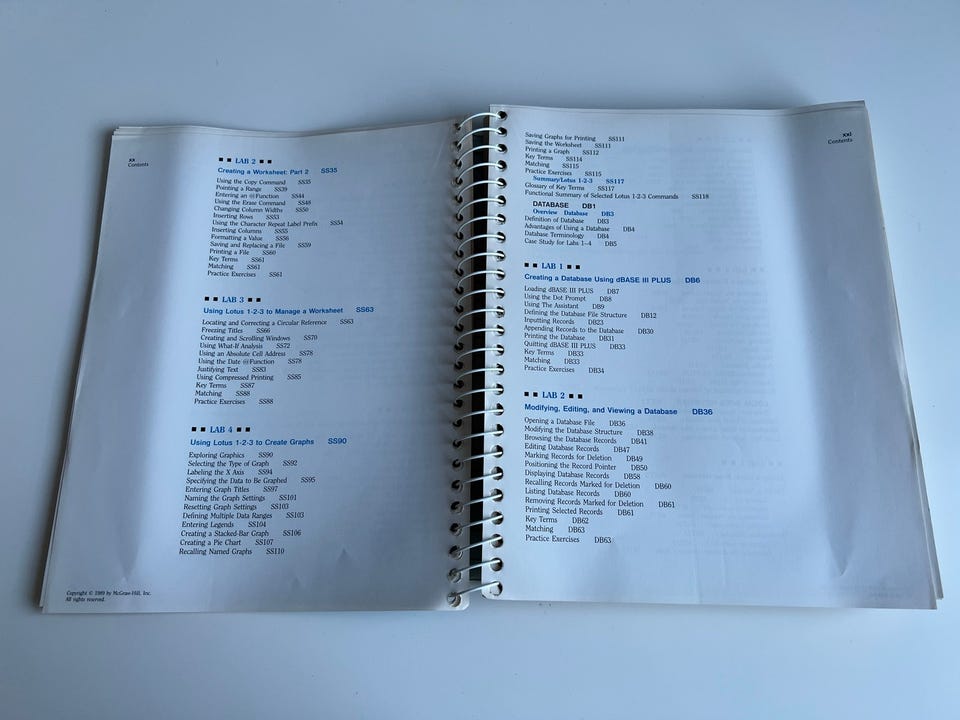 xx
Contents
■ ■ LAB 2 ■ ■
Creating a Worksheet: Part 2 SS35
Using the Copy Command SS35
Pointing a Range SS39
Entering an @Function SS44
Using the Erase Command SS48
Changing Column Widths SS50
Inserting Rows SS53
Using the Character Repeat Label Prefix SS54
Inserting Columns SS55
Formatting a Value SS56
Saving and Replacing a File SS59
Printing a File SS60
Key Terms SS61
Matching SS61
Practice Exercises SS61
■ ■ LAB 3 ■ ■
Using Lotus 1-2-3 to Manage a Worksheet SS63
Locating and Correcting a Circular Reference SS63
Freezing Titles SS66
Creating and Scrolling Windows SS70
Using What-If Analysis SS72
Using an Absolute Cell Address SS78
Using the Date @Function SS78
Justifying Text SS83
Using Compressed Printing SS85
Key Terms SS87
Matching SS88
Practice Exercises SS88
■ ■ LAB 4 ■ ■
Using Lotus 1-2-3 to Create Graphs SS90
Exploring Graphics SS90
Selecting the Type of Graph SS92
Labeling the X Axis SS94
Specifying the Data to Be Graphed SS95
Entering Graph Titles SS97
Naming the Graph Settings SS101
Resetting Graph Settings SS103
Defining Multiple Data Ranges SS103
Entering Legends SS104
Creating a Stacked-Bar Graph SS106
Creating a Pie Chart SS107
Recalling Named Graphs SS110
Copyright © 1989 by McGraw-Hill, Inc.
All rights reserved.
xxi
Contents
Saving Graphs for Printing SS111
Saving the Worksheet SS111
Printing a Graph SS112
Key Terms SS114
Matching SS115
Practice Exercises SS115
Summary/Lotus 1-2-3 SS117
Glossary of Key Terms SS117
Functional Summary of Selected Lotus 1-2-3 Commands SS118
DATABASE DB1
Overview Database DB3
Definition of Database DB3
Advantages of Using a Database DB4
Database Terminology DB4
Case Study for Labs 1–4 DB5
■ ■ LAB 1 ■ ■
Creating a Database Using dBASE III PLUS DB6
Loading dBASE III PLUS DB7
Using the Dot Prompt DB8
Using The Assistant DB9
Defining the Database File Structure DB12
Inputting Records DB23
Appending Records to the Database DB30
Printing the Database DB31
Quitting dBASE III PLUS DB33
Key Terms DB33
Matching DB33
Practice Exercises DB34
■ ■ LAB 2 ■ ■
Modifying, Editing, and Viewing a Database DB36
Opening a Database File DB36
Modifying the Database Structure DB38
Browsing the Database Records DB41
Editing Database Records DB47
Marking Records for Deletion DB49
Positioning the Record Pointer DB50
Displaying Database Records DB58
Recalling Records Marked for Deletion DB60
Listing Database Records DB60
Removing Records Marked for Deletion DB61
Printing Selected Records DB61
Key Terms DB62
Matching DB63
Practice Exercises DB63